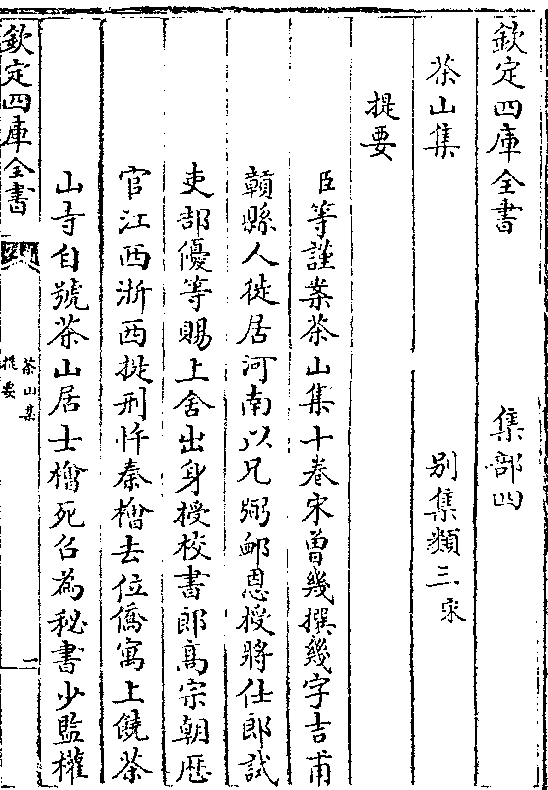 欽定四庫全書　集部四
茶山集　别集類三宋
提要
臣等謹案茶山集十卷宋曾幾撰幾字吉甫
贛縣人徙居河南以兄弼䘏恩授將仕郎試
吏部優等賜上舍出身授校書郎髙宗朝歴
官江西浙西提刑忤秦檜去位僑寓上饒茶
山寺自號茶山居士檜死召為秘書少監權
欽定四庫全書
茶山集
提要
一